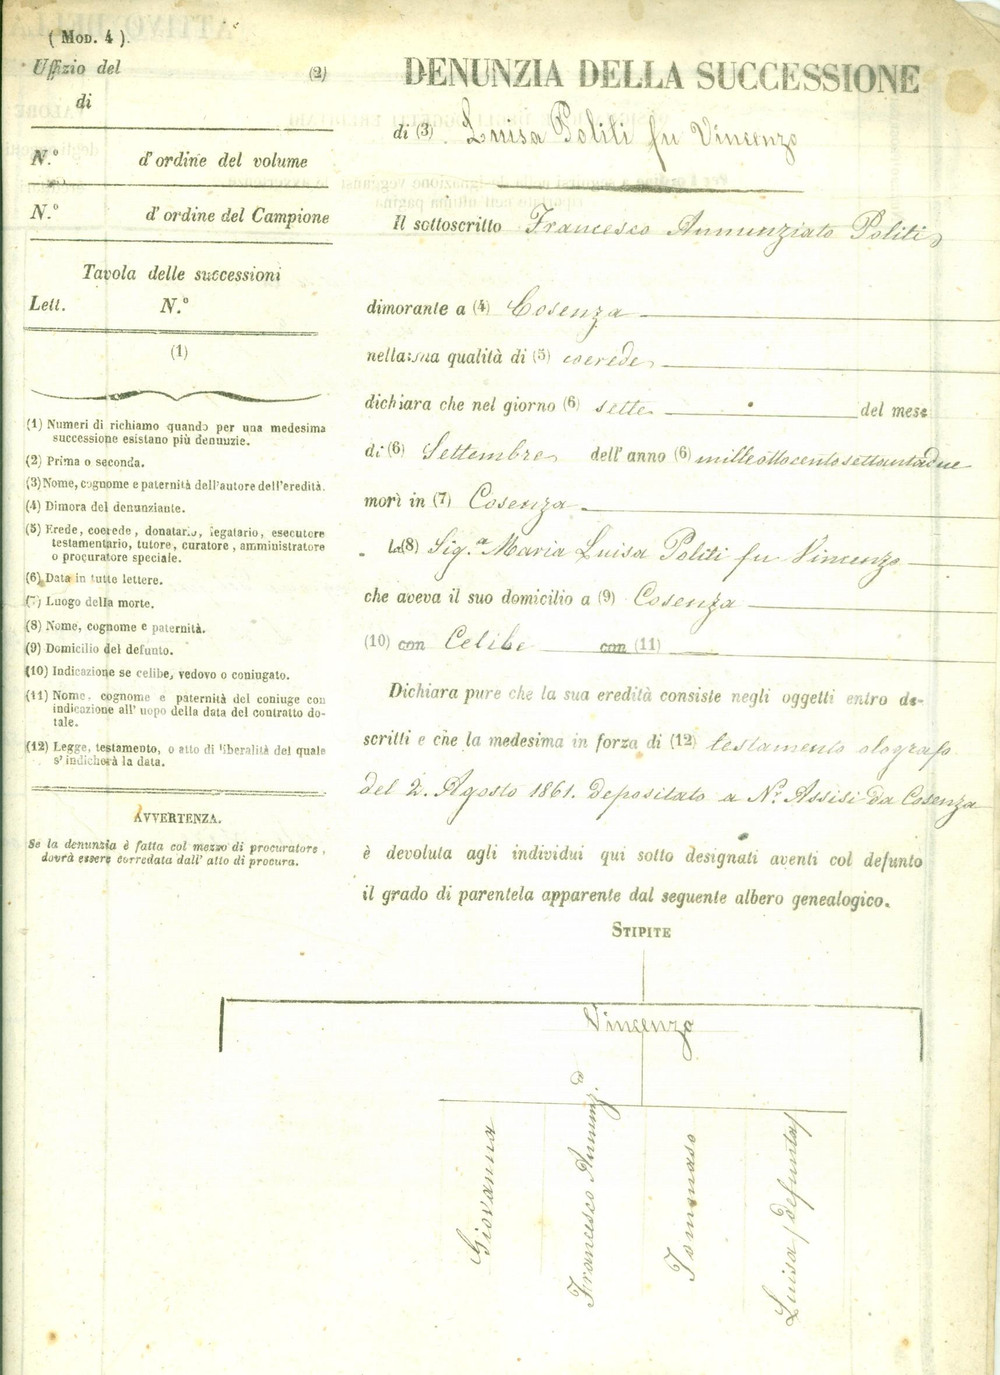 ( Mod. 4 ).
Uffizio del (2)
di
N.° d'ordine del volume
N.° d'ordine del Campione
Tavola delle successioni
Lett. N.°
(1)
(1) Numeri di richiamo quando per una medesima
successione esistano più denunzie.
(2) Prima o seconda.
(3) Nome, cognome e paternità dell'autore dell'eredità.
(4) Dimora del denunziante.
(5) Erede, coerede, donatario, legatario, esecutore
testamentario, tutore, curatore, amministratore
o procuratore speciale.
(6) Data in tutte lettere.
(7) Luogo della morte.
(8) Nome, cognome e paternità.
(9) Domicilio del defunto.
(10) Indicazione se celibe, vedovo o coniugato.
(11) Nome, cognome e paternità del coniuge con
indicazione all'uopo della data del contratto do-
tale.
(12) Legge, testamento, o atto di liberalità del quale
s'indicherà la data.
Avvertenza.
Se la denunzia è fatta col mezzo di procuratore,
dovrà essere corredata dall'atto di procura.
DENUNZIA DELLA SUCCESSIONE
di (3) Luisa Politi fu Vincenzo
Il sottoscritto Francesco Annunziato Politi
dimorante a (4) Cosenza
nella sua qualità di (5) coerede
dichiara che nel giorno (6) sette del mese
di (6) Settembre dell'anno (6) milleottocentosettantadue
morì in (7) Cosenza
la (8) Sig.a Maria Luisa Politi fu Vincenzo
che aveva il suo domicilio a (9) Cosenza
(10) con Celibe con (11)
Dichiara pure che la sua eredità consiste negli oggetti entro de-
scritti e che la medesima in forza di (12) testamento olografo
del 2. Agosto 1861. Depositato a Nr. Assisi da Cosenza
è devoluta agli individui qui sotto designati aventi col defunto
il grado di parentela apparente dal seguente albero genealogico.
Stipite
Vincenzo
Giovanna
Francesco Annunz.o
Tommaso
Luisa (defunta)